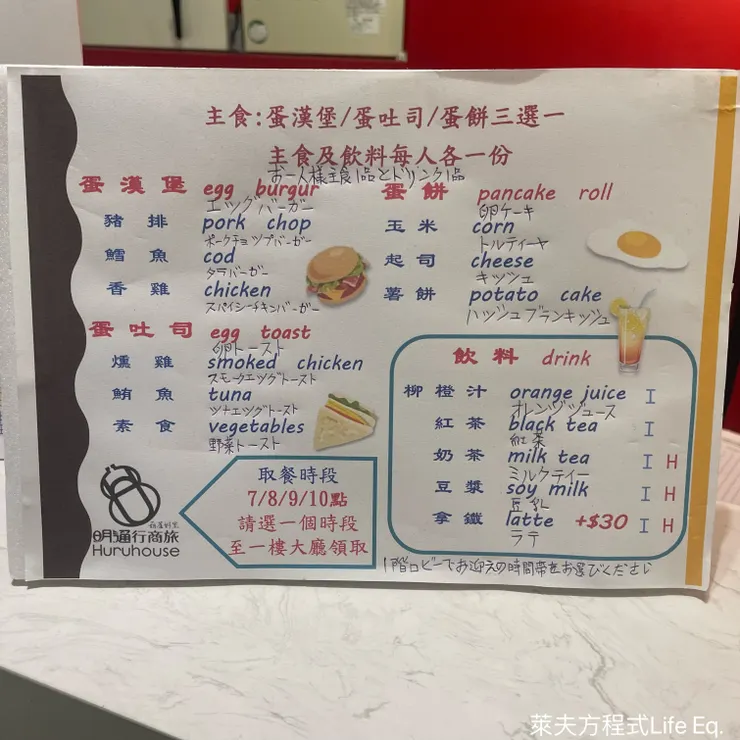 主食:蛋漢堡/蛋吐司/蛋餅三選一
主食及飲料每人各一份
お一人様主食1品とドリンク1品
蛋漢堡 egg burgur
エッグバーガー
豬排 pork chop
ポークチョップバーガー
鱈魚 cod
タラバーガー
香雞 chicken
スパイシーチキンバーガー
蛋吐司 egg toast
卵トースト
燻雞 smoked chicken
スモークエッグトースト
鮪魚 tuna
ツナエッグトースト
素食 vegetables
野菜トースト
蛋餅 pancake roll
卵ケーキ
玉米 corn
トルティーヤ
起司 cheese
キッシュ
薯餅 potato cake
ハッシュブランキッシュ
飲料 drink
柳橙汁 orange juice I
オレンジジュース
紅茶 black tea I
紅茶
奶茶 milk tea I H
ミルクティー
豆漿 soy milk I H
豆乳
拿鐵 latte +$30 I H
ラテ
取餐時段
7/8/9/10點
請選一個時段
至一樓大廳領取
葫蘆馝室
明通行商旅
Huruhouse
1階ロビーでお迎えの時間帯をお選びください
萊夫方程式Life Eq.